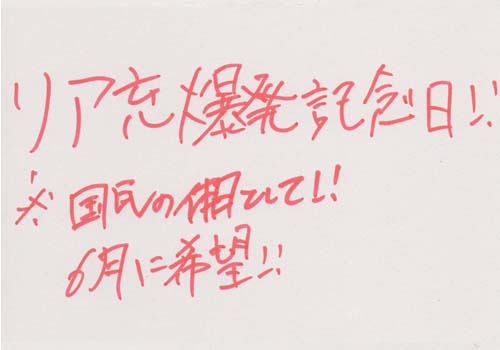 リア充爆発記念日!!
※国民の休日として!!
6月に希望!!